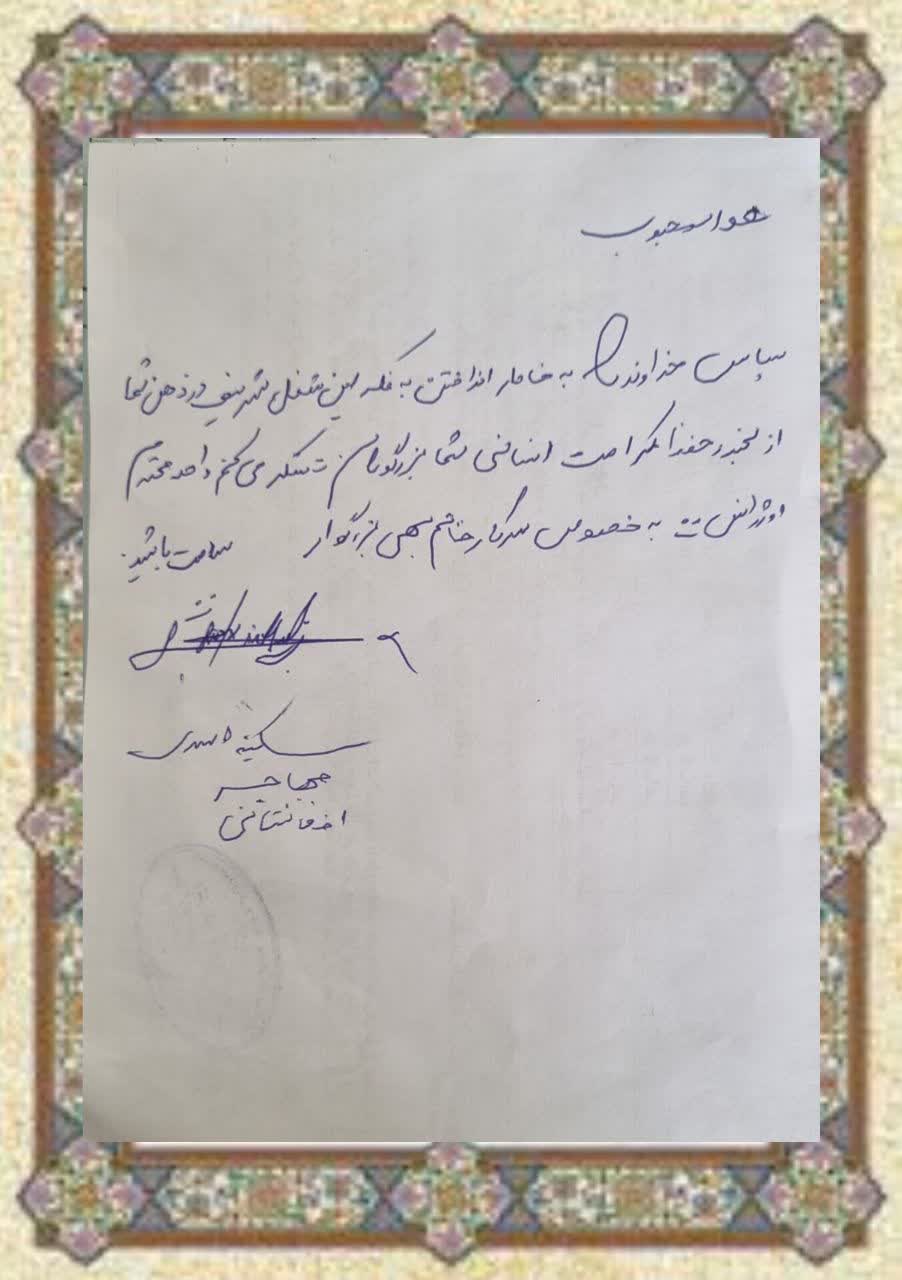 هوالمحبوب
سپاس خداوند را به خاطر انداختن به فکر این شغل شریفی در ذهن شما
از لبخند و حفظ کرامت انسانی شما بزرگواران تشکر می کنم واحد محترم
اورژانس به خصوص سرکار خانم بزرگوار سلامت باشید
سکینه اسدی
مهاجر
افغانستانی